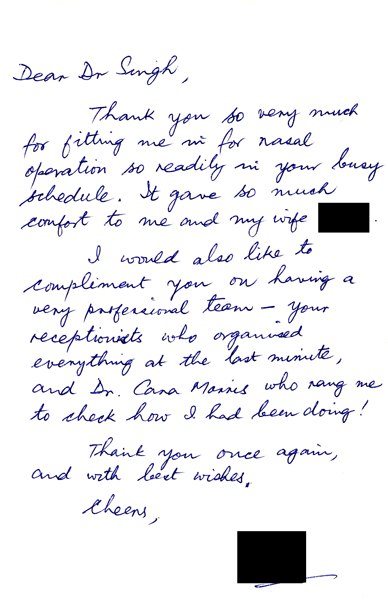 Dear Dr Singh,
Thank you so very much
for fitting me in for nasal
operation so readily in your busy
schedule. It gave so much
comfort to me and my wife .
I would also like to
compliment you on having a
very professional team – your
receptionists who organised
everything at the last minute,
and Dr. Cara Morris who rang me
to check how I had been doing!
Thank you once again,
and with best wishes.
Cheers,